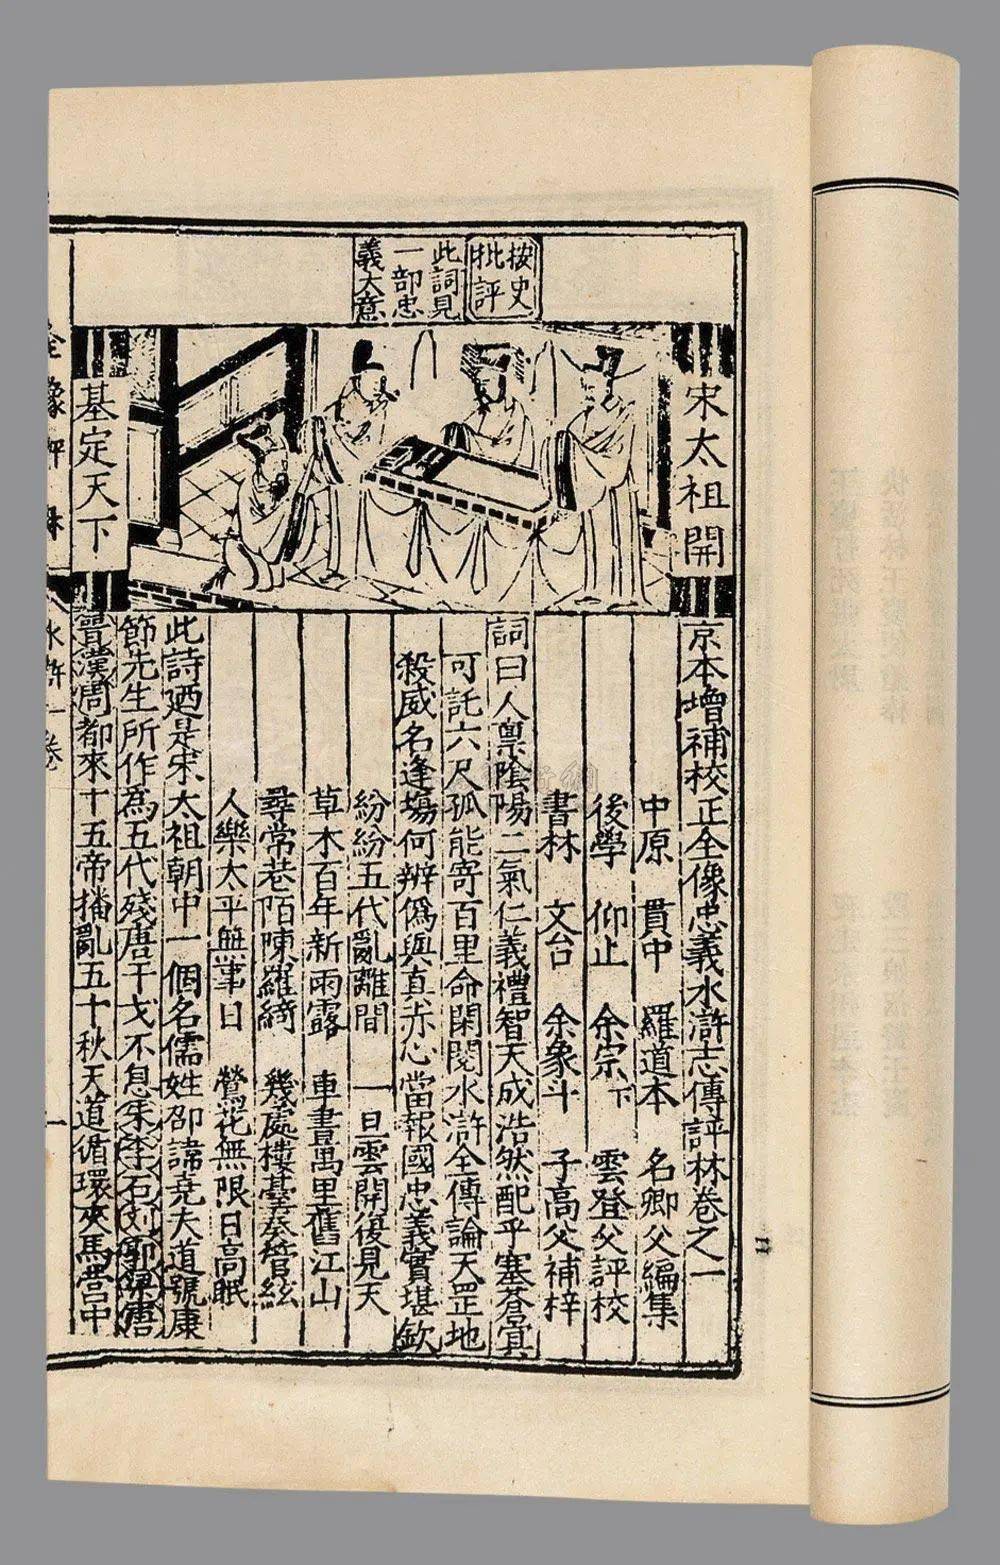 按史
批評
此詞見
一部忠
義大意
宋太祖開
基定天下
京本增補校正全像忠義水滸志傳評林卷之一
中原 貫中 羅道本 名卿父編集
後學 仰止 余宗下 雲登父評校
書林 文台 余象斗 子高父補梓
詞曰人稟陰陽二氣仁義禮智天成浩然配乎塞蒼冥
可託六尺孤能寄百里命閑閱水滸全傳論天罡地
殺威名逢塲何辨僞與真赤心當報國忠義實堪欽
紛紛五代亂離間 一旦雲開復見天
草木百年新雨露 車書萬里舊江山
尋常巷陌陳羅綺 幾處樓臺奏管絃
人樂太平無事日 鶯花無限日高眠
此詩廼是宋太祖朝中一個名儒姓邵諱堯夫道號康
節先生所作爲五代殘唐干戈不息朱李石劉郭梁唐
晉漢周都來十五帝播亂五十秋天道循環夾馬營中
全像評林 水滸一卷 一